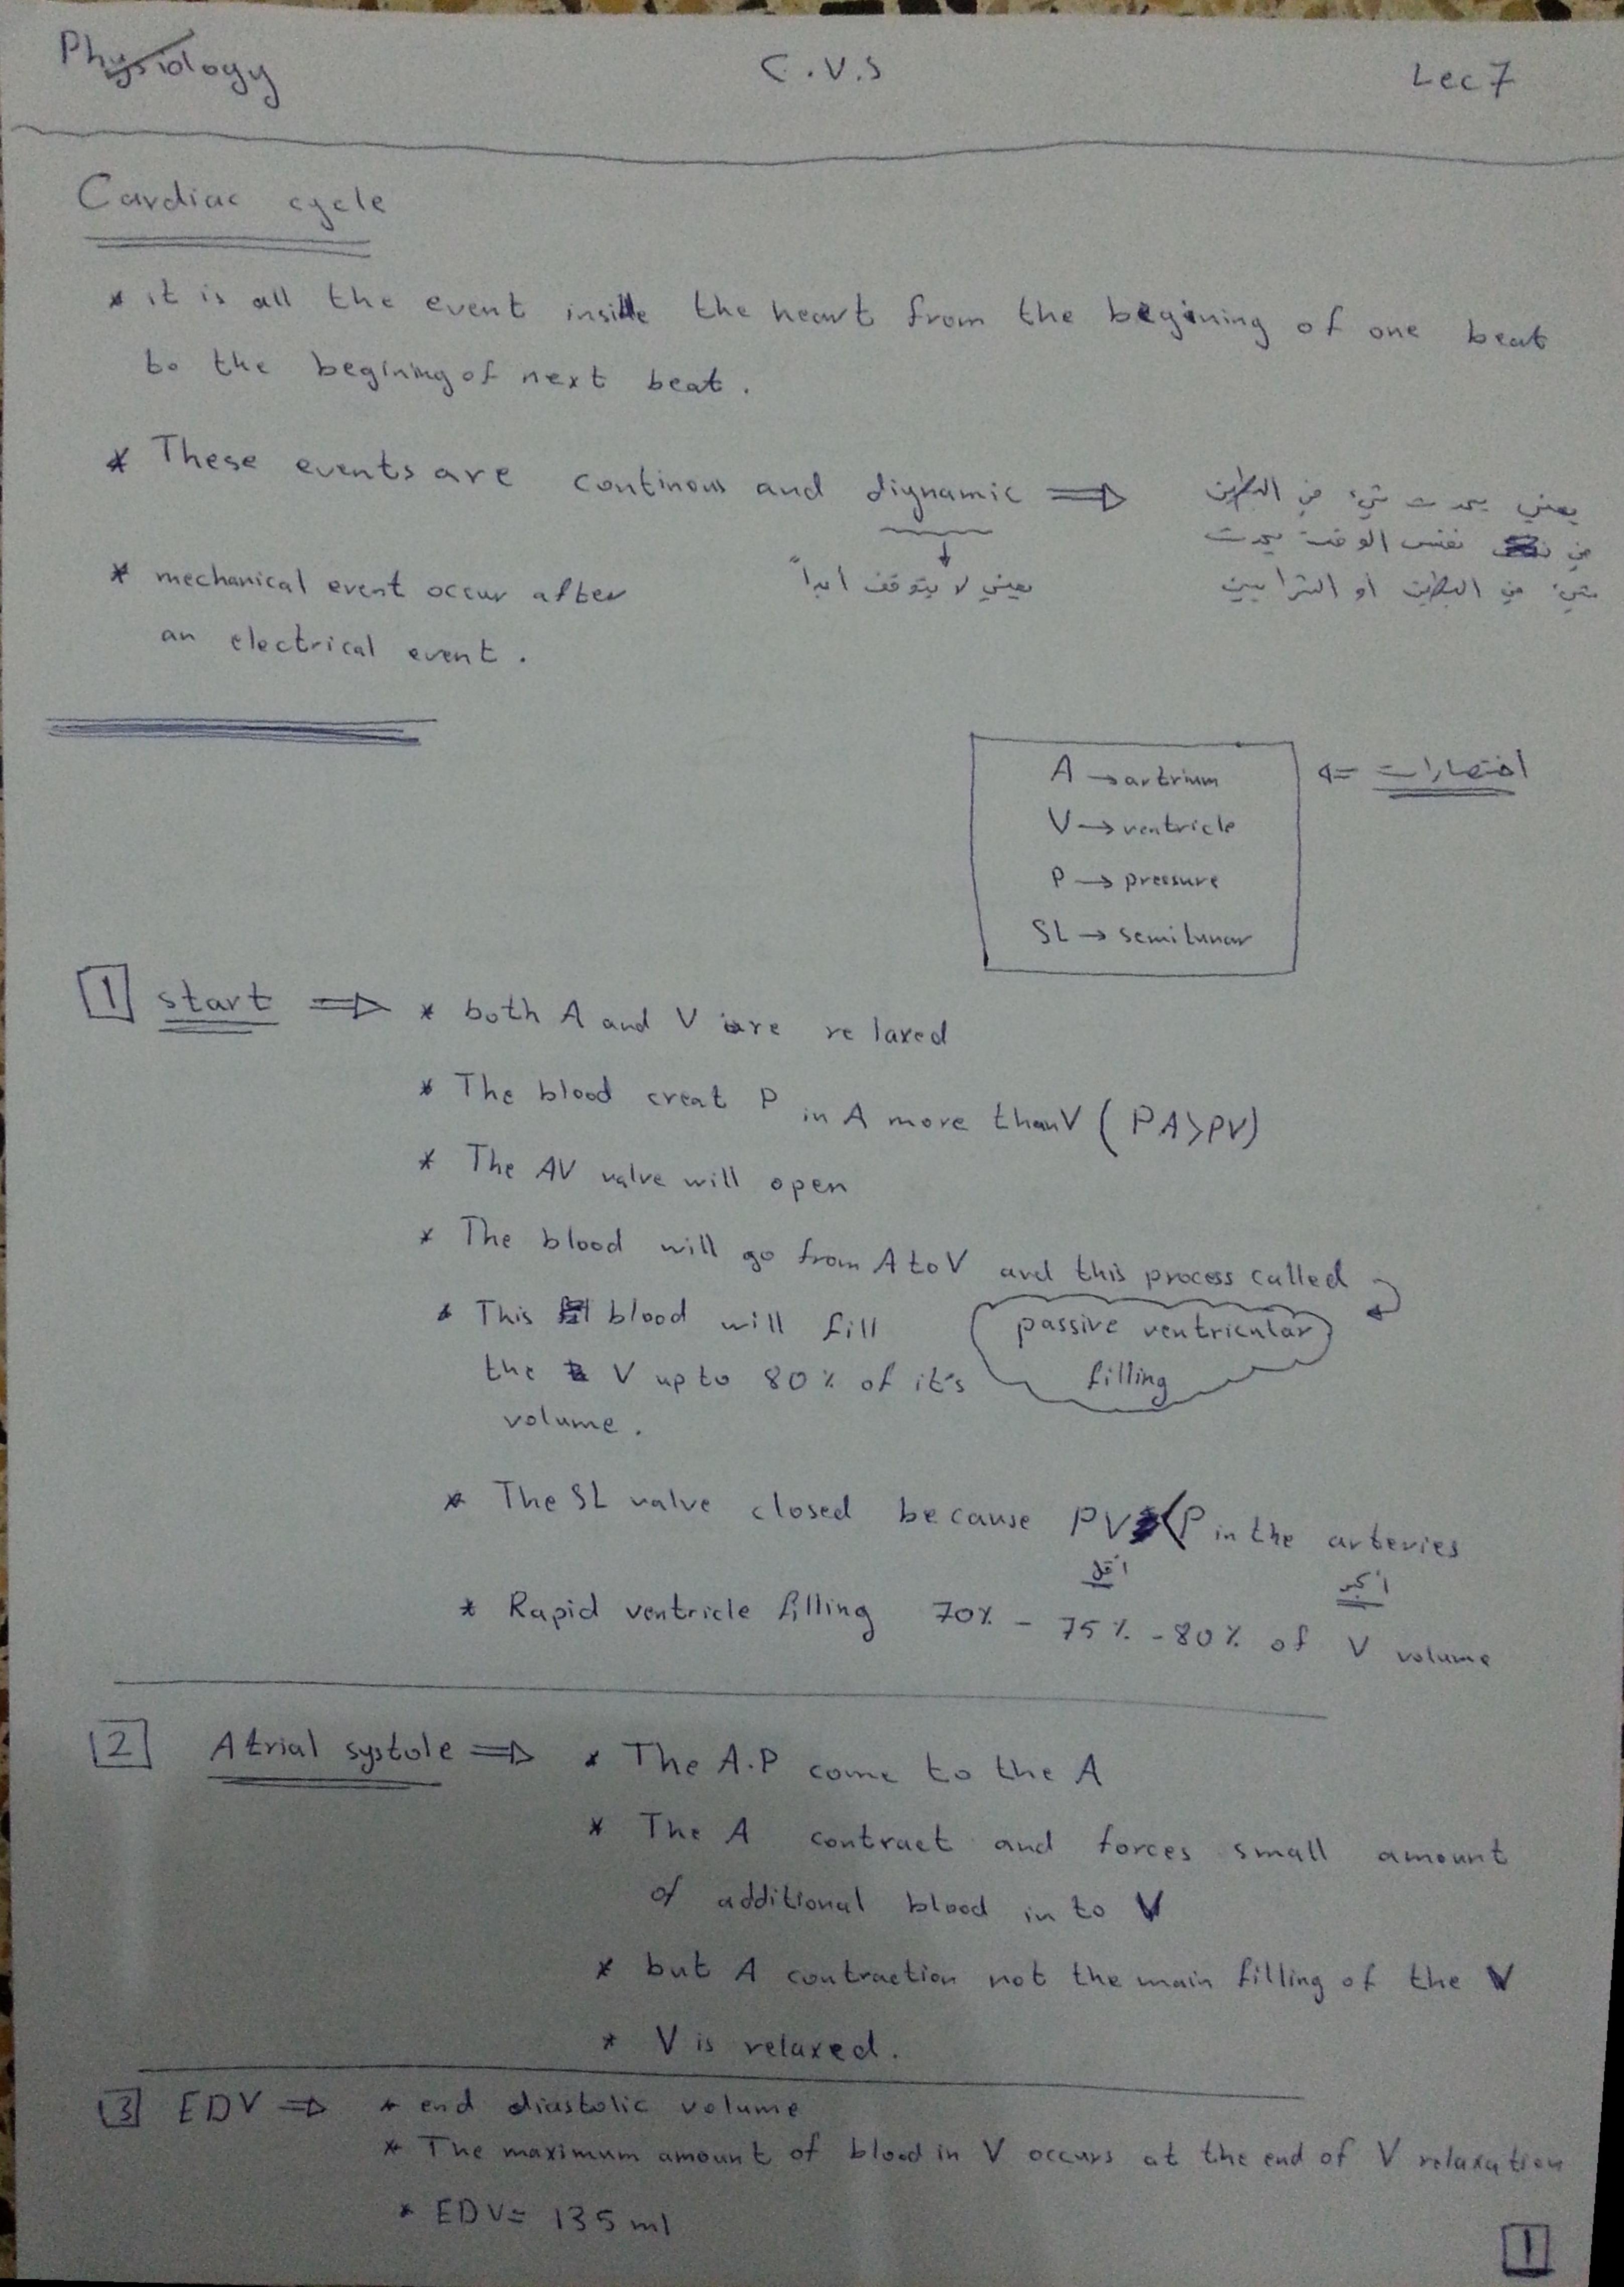 Physiology C.V.S Lec 7
Cardiac cycle
* it is all the event inside the heart from the begining of one beat
to the begining of next beat.
* These events are continous and diynamic ⇒ يعني يحدث شيء في البطين
في نفس الوقت يحدث
شيء في البطين أو الشرايين
يعني لا يتوقف أبداً
* mechanical event occur after
an electrical event.
اختصارات ⇐
A → artrium
V → ventricle
P → pressure
SL → semilunar
1 start ⇒ * both A and V are relaxed
* The blood creat P in A more than V (PA>PV)
* The AV valve will open
* The blood will go from A to V and this process called
passive ventricular
filling
* This blood will fill
the V up to 80% of it's
volume.
* The SL valve closed because PV < P in the arteries
أقل أكبر
* Rapid ventricle filling 70% - 75% - 80% of V volume
2 Atrial systole ⇒ * The A.P come to the A
* The A contract and forces small amount
of additional blood in to V
* but A contraction not the main filling of the V
* V is relaxed.
3 EDV ⇒ * end diastolic volume
* The maximum amount of blood in V occurs at the end of V relaxation
* EDV = 135 ml
1